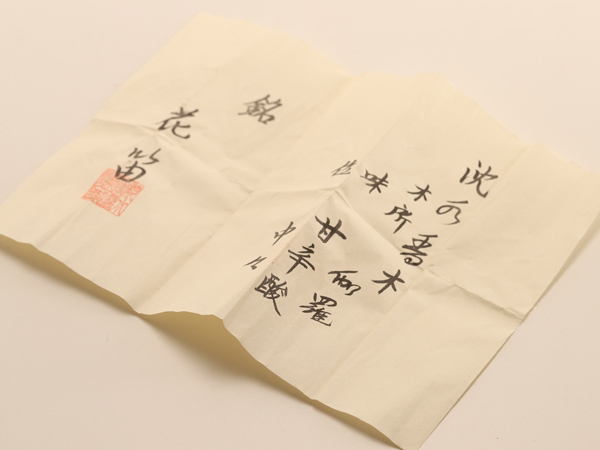 沈水香木
木所 伽羅
味 甘辛酸
位 中
銘
花笛